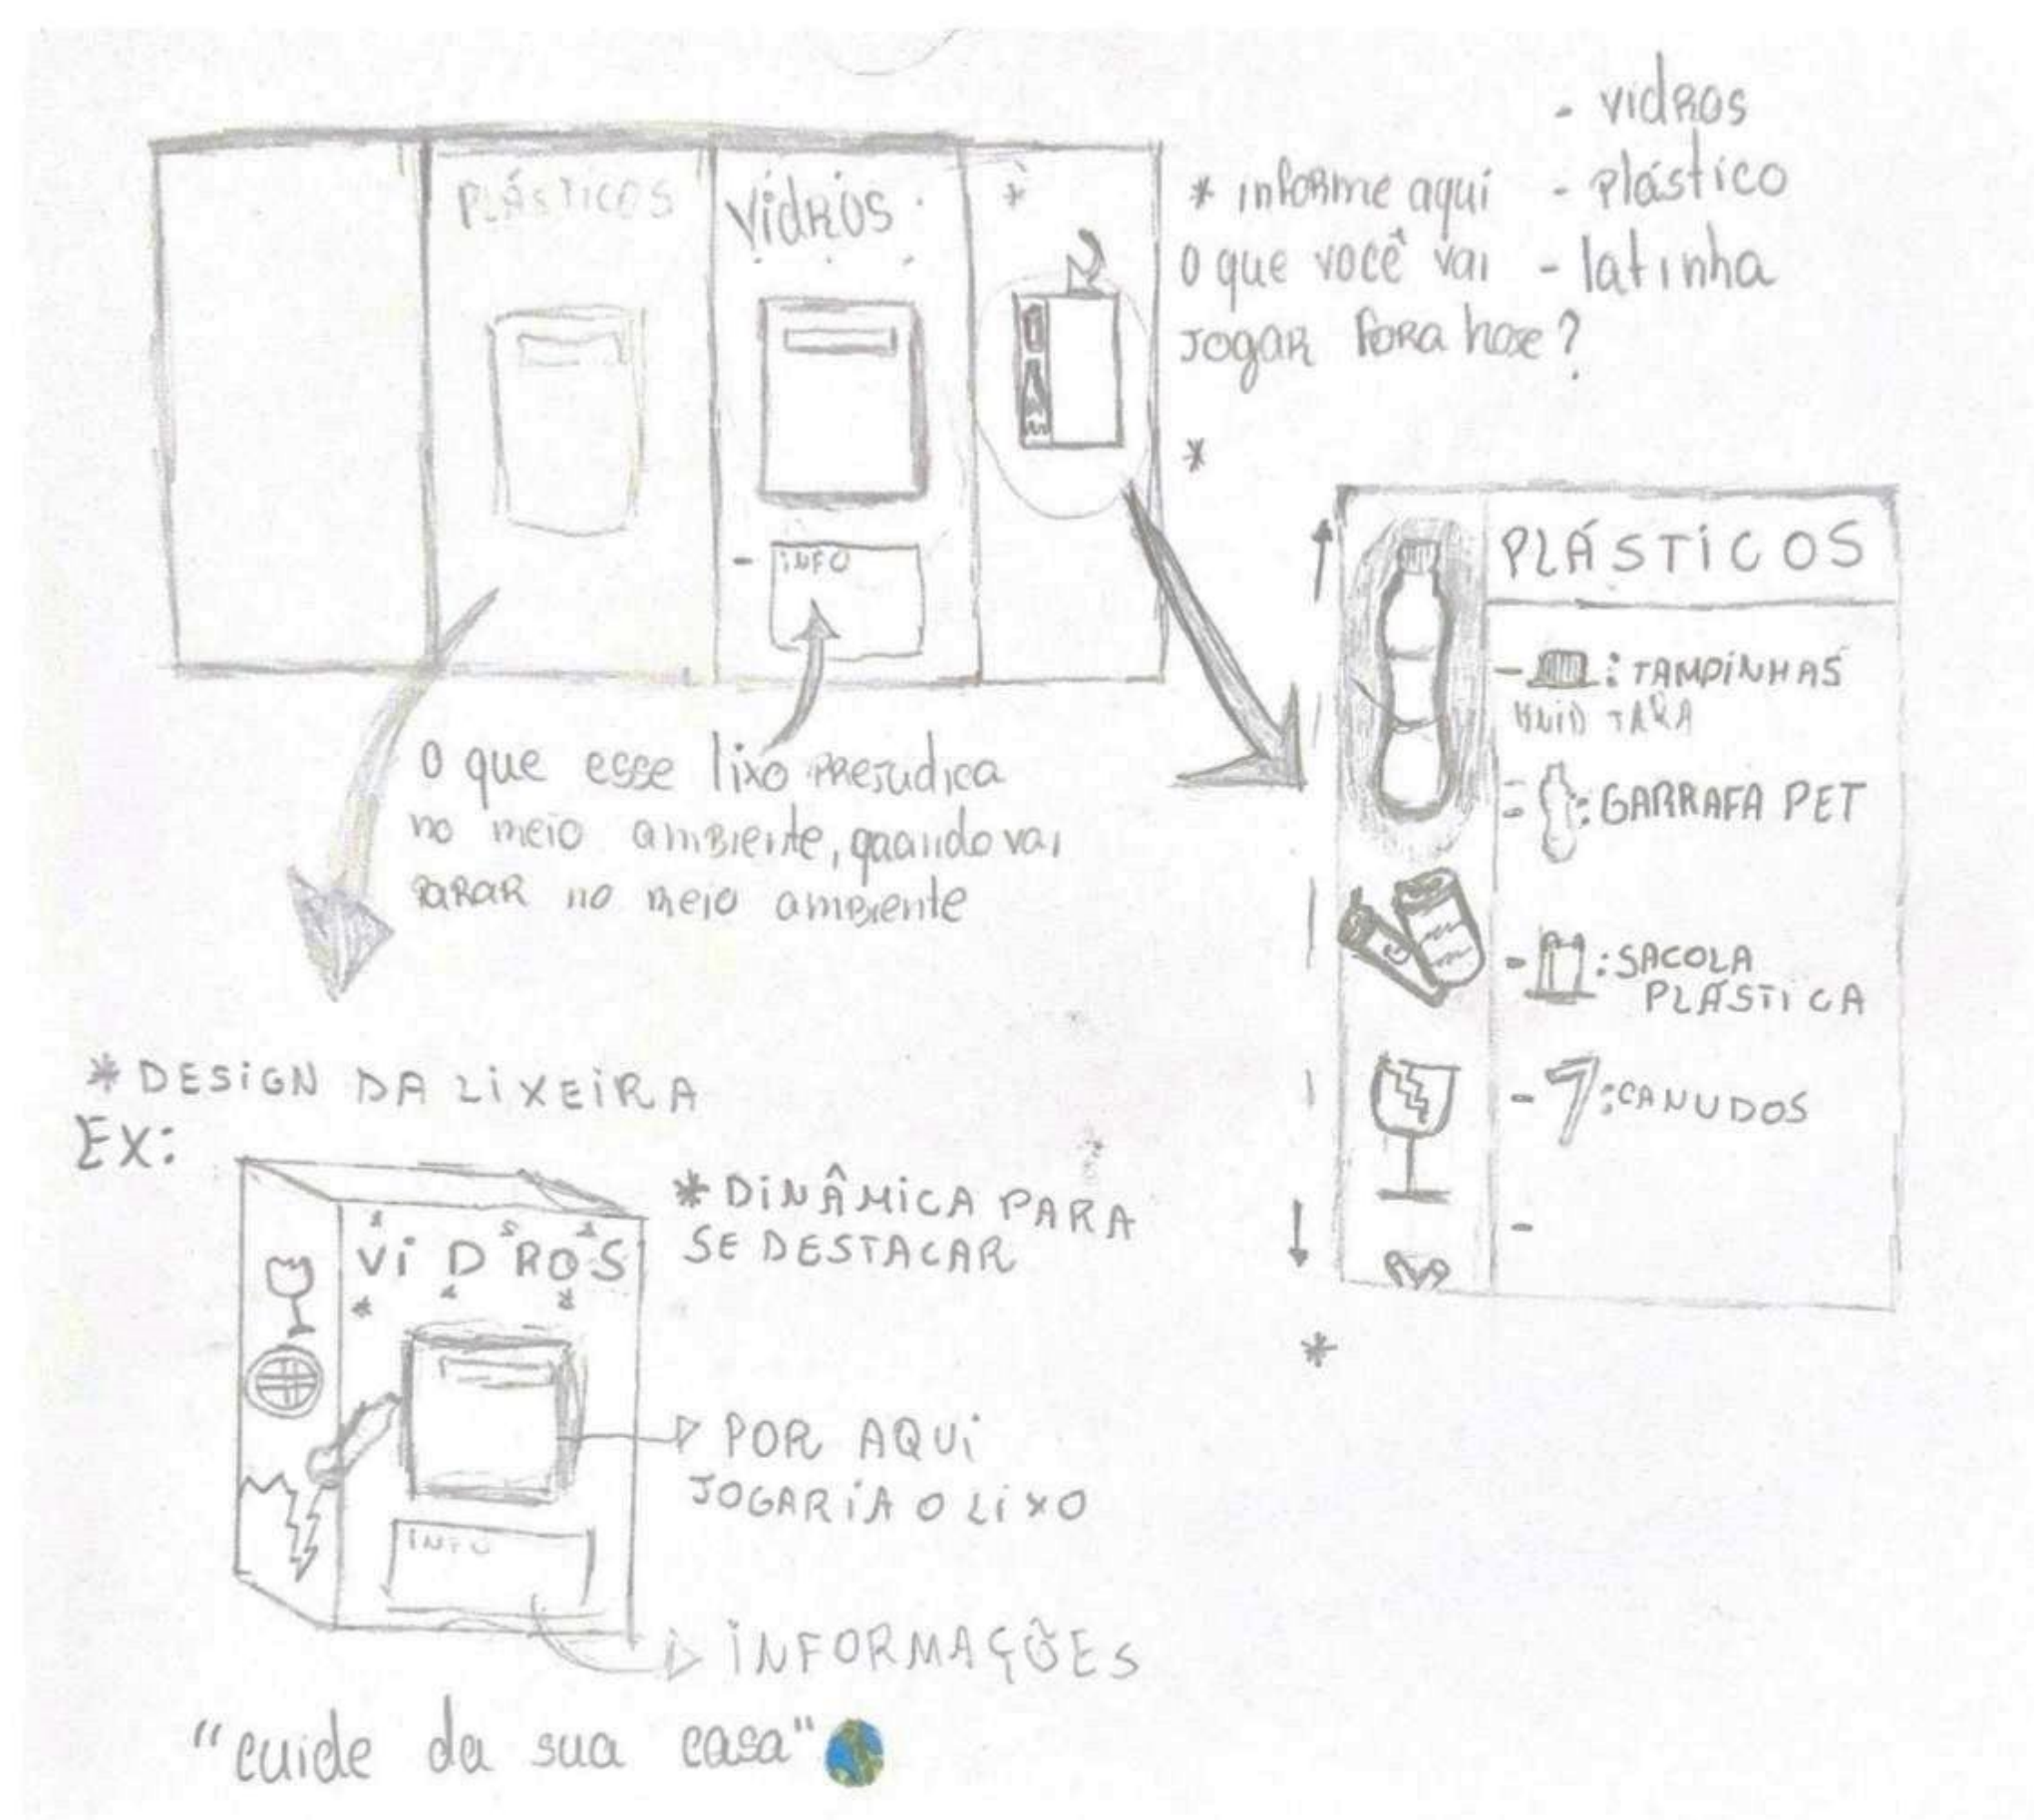 - vidros
- plástico
- latinha
* informe aqui
o que você vai
jogar fora hoje?
PLÁSTICOS
vidros
*
INFO
*
O que esse lixo prejudica
no meio ambiente, quando vai
parar no meio ambiente
PLÁSTICOS
- : TAMPINHAS
: GARRAFA PET
- : SACOLA
PLÁSTICA
- : CANUDOS
-
*
* DESIGN DA LIXEIRA
EX:
VIDROS
INFO
* DINÂMICA PARA
SE DESTACAR
POR AQUI
JOGARIA O LIXO
INFORMAÇÕES
"cuide da sua casa"